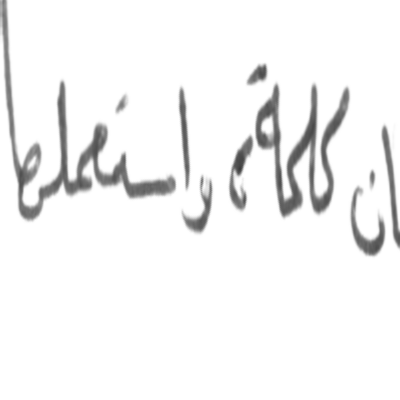 ان كلمة ، واستعملها